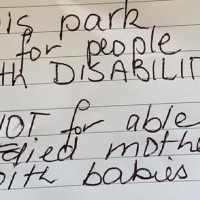 is park
for people
th DISABILIT
NOT for able
died mothe
with babies